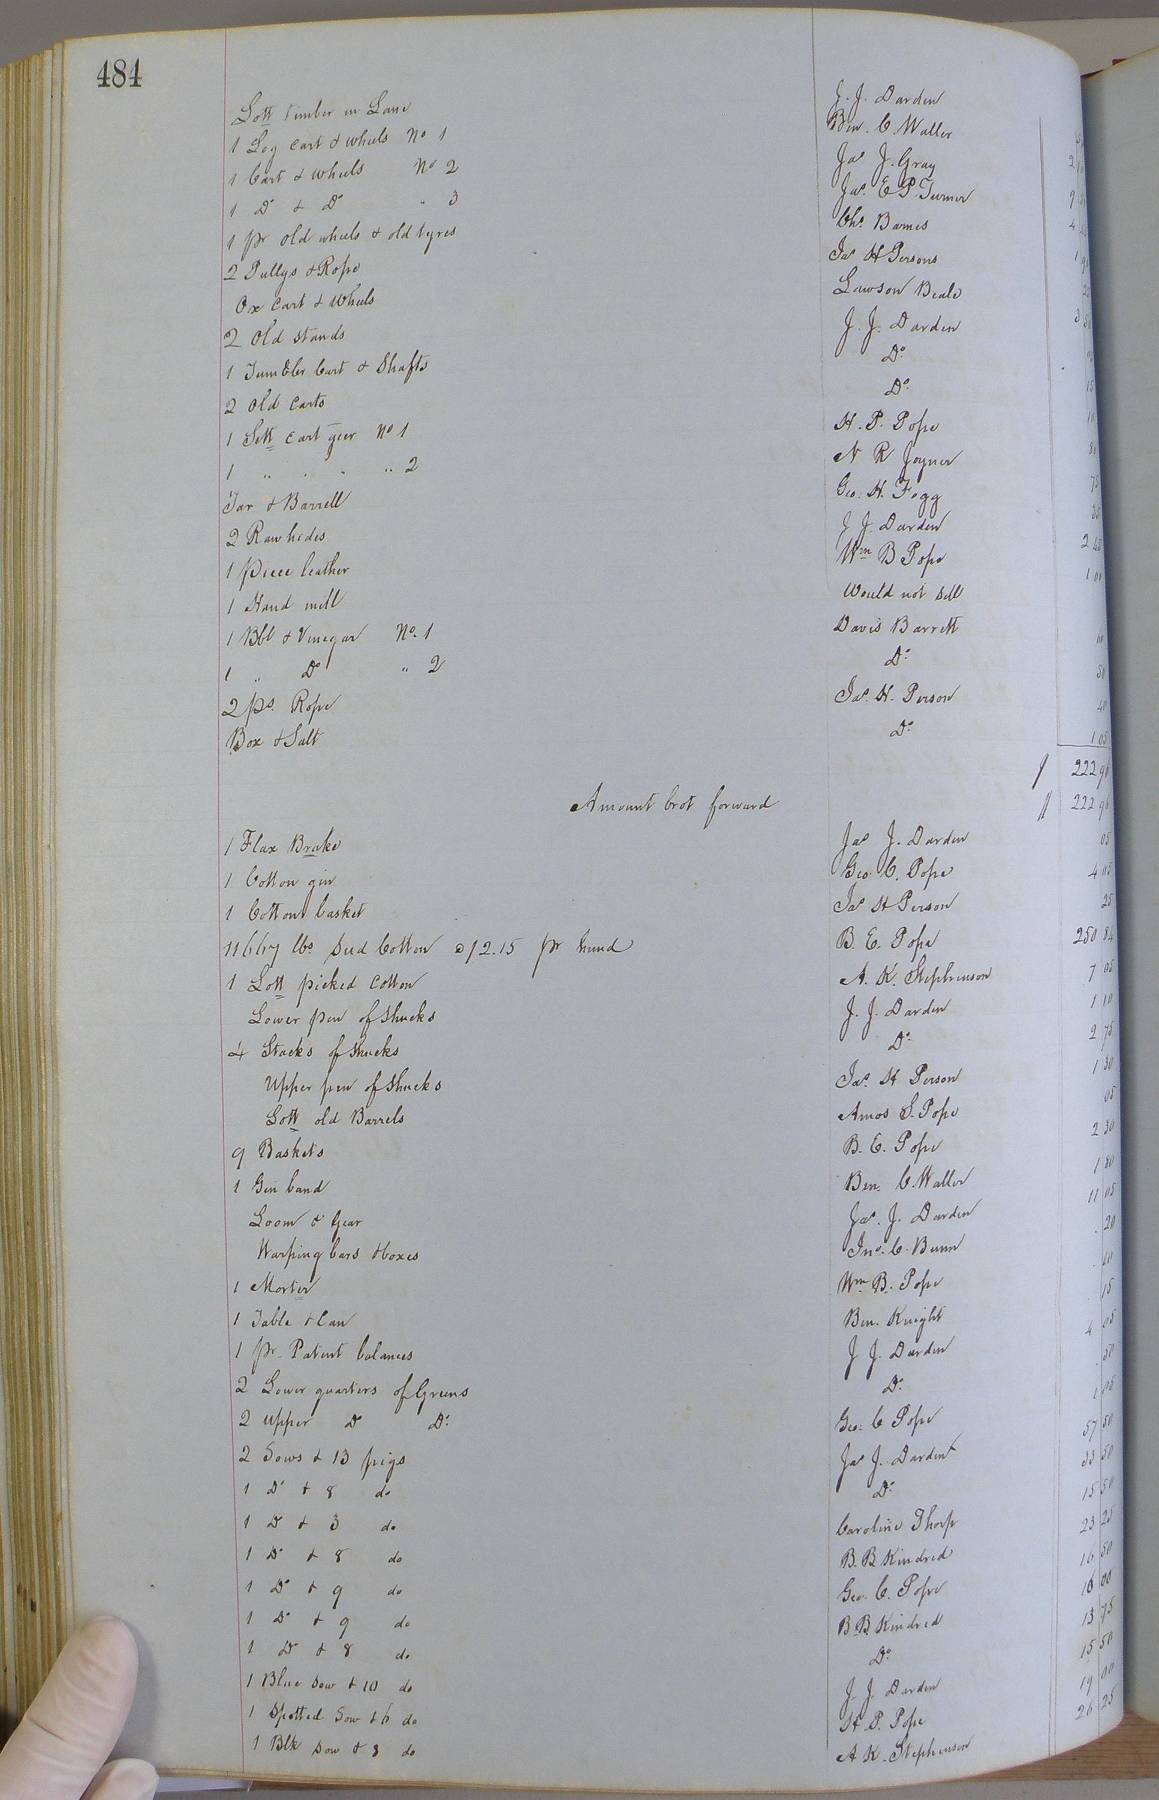 484
Lott timber in Lane J. J. Darden
1 Log cart & wheels No 1 Ben. C. Waller
1 Cart & wheels No 2 Jas J. Gray
1 Do & Do " 3 Jas. E. P. Turner
1 pr old wheels & old tyres Chs. Barnes
2 Pullys & Rope Jas H Persons
Ox Cart & Wheels Lawson Beale
2 Old stands J. J. Darden
1 Tumbler Cart & Shafts Do
2 Old Carts Do
1 Sett cart geer No 1 H. P. Pope
1 " " " " 2 N R Joyner
Tar & Barrell Geo. H. Fogg
2 Raw hides J J. Darden
1 piece leather Wm B Pope
1 Hand mill Would not sell
1 Bbl & Vinegar No. 1 Davis Barrett
1 " Do " 2 Do 50
2 ps. Rope Jas. H. Person 40
Box & Salt Do 1 05
222 96
Amount brot forward 222 96
1 Flax Brake Jas J. Darden 05
1 Cotton gin Geo. C. Pope 4 05
1 Cotton basket Jas H Person 25
11667 lbs. Seed Cotton @ $2.15 pr hund B. E. Pope 250 84
1 Lott picked cotton A. K. Stephenson 7 05
Lower pen of Shucks J. J. Darden 1 10
4 Stacks of Shucks Do 2 75
Upper pen of Shucks Jas. H Person 1 30
Lott old Barrels Amos S. Pope 05
9 Baskets B. E. Pope 2 30
1 Gin band Ben. C. Waller 1 80
Loom & Gear Jas. J. Darden 11 05
Warping bars & boxes Jno. C. Bunn 20
1 Morter Wm. B. Pope
1 Table & Can Ben. Knight 15
1 pr. Patent balances J J. Darden 4 05
2 Lower quarters of Greens Do 50
2 Upper Do Do Geo. C Pope 05
2 Sows & 13 pigs Jas J. Darden 57 50
1 Do & 8 do Do 33 50
1 Do & 3 do Caroline Thorp 15 50
1 Do & 8 do B. B Kindred 23 25
1 Do & 9 do Geo. C. Pope 16 50
1 Do & 9 do B. B. Kindred 16 00
1 Do & 8 do Do 13 75
1 Blue Sow & 10 do J J. Darden 15 50
1 Spotted Sow & 6 do H P. Pope 19 00
1 Blk Sow & 8 do A K. Stephenson 26 25